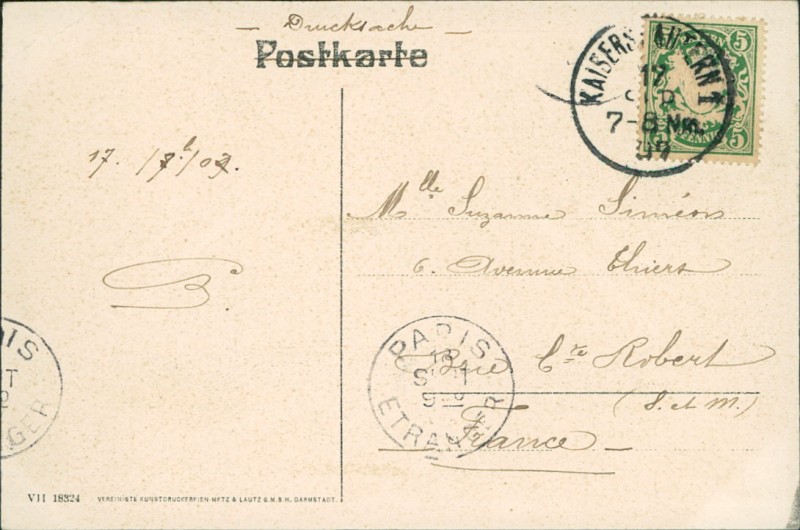 — Drucksache —
Postkarte
KAISERSLAUTERN 1
17
SEP
7-8 Nm.
07
5 5
5 PFENNIG 5
17. /
Mlle Suzanne Siméon
6. Avenue Thiers
Brie Cte Robert
(S. et M.)
France
PARIS
18
SEPT
ETRANGER
IS
T
GER
VII 18324 VEREINIGTE KUNSTDRUCKEREIEN METZ & LAUTZ G.M.B.H. DARMSTADT.